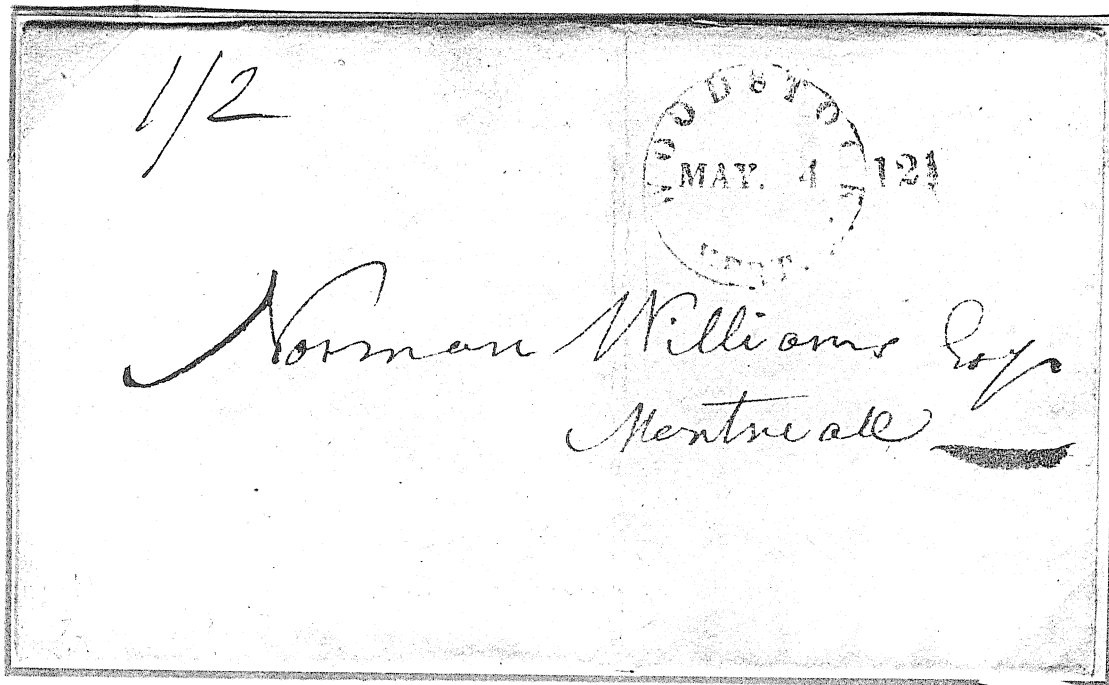 1/2
WOODSTOCK
MAY. 4 12½
VERT.
Norman Williams Esqr
Montreall